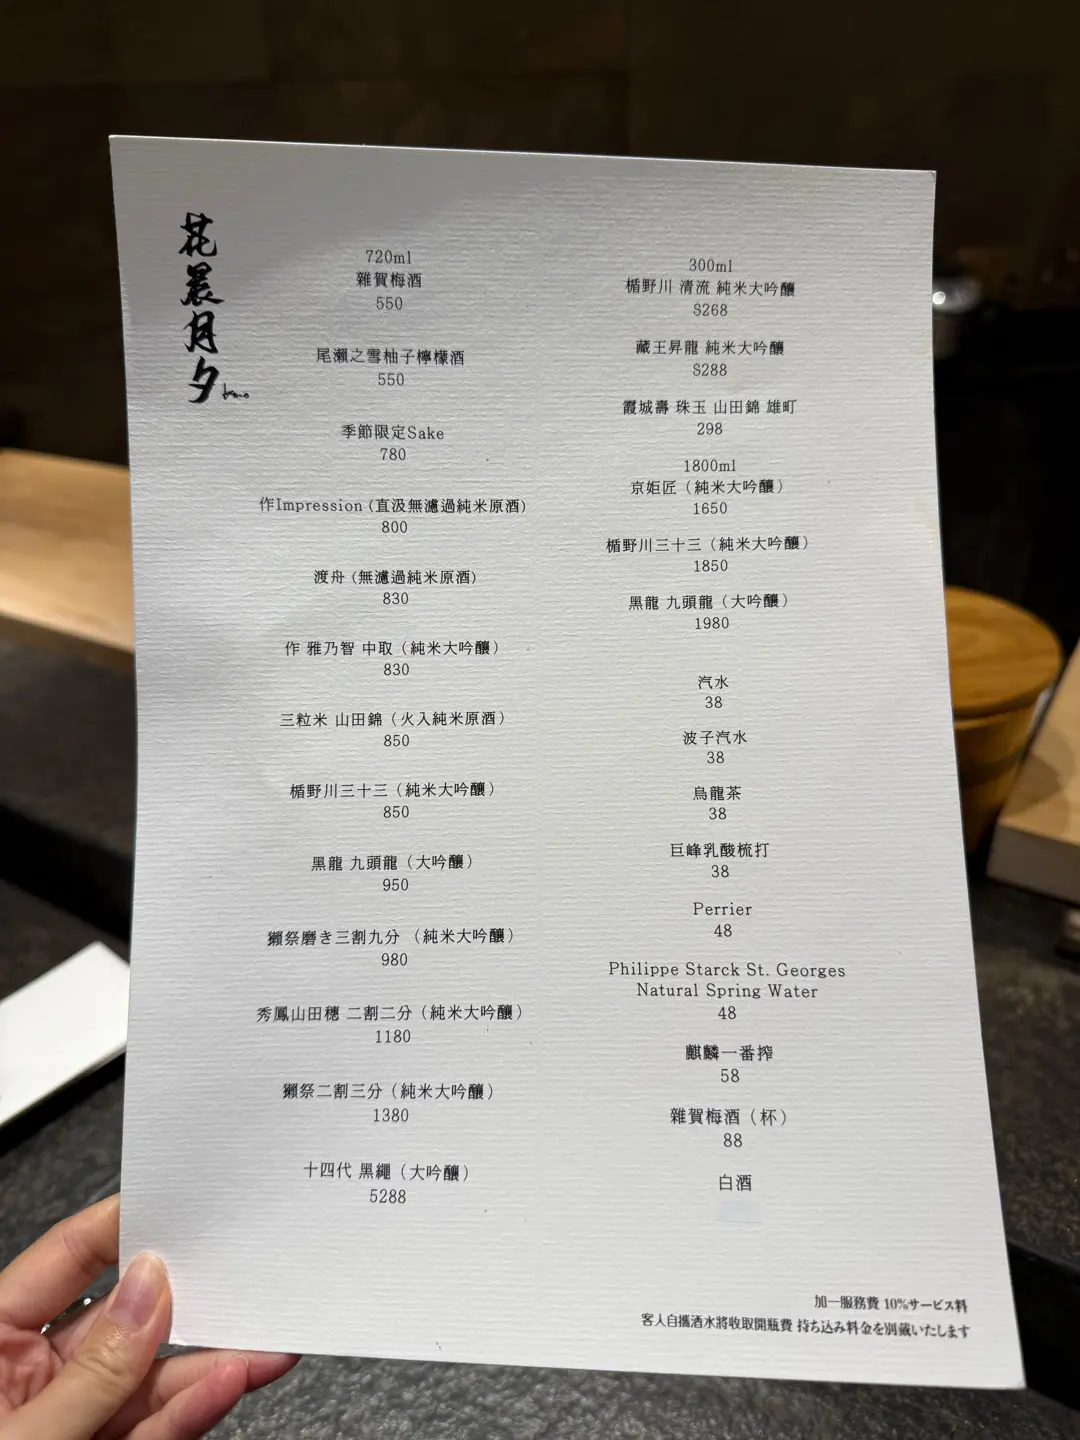 花晨月夕
720ml
雜賀梅酒
550
尾瀨之雪柚子檸檬酒
550
季節限定Sake
780
作Impression (直汲無濾過純米原酒)
800
渡舟 (無濾過純米原酒)
830
作 雅乃智 中取（純米大吟釀）
830
三粒米 山田錦（火入純米原酒）
850
楯野川三十三（純米大吟釀）
850
黑龍 九頭龍（大吟釀）
950
獺祭磨き三割九分 （純米大吟釀）
980
秀鳳山田穗 二割二分（純米大吟釀）
1180
獺祭二割三分（純米大吟釀）
1380
十四代 黑繩（大吟釀）
5288
300ml
楯野川 清流 純米大吟釀
$268
藏王昇龍 純米大吟釀
$288
霞城壽 珠玉 山田錦 雄町
298
1800ml
京姫匠（純米大吟釀）
1650
楯野川三十三（純米大吟釀）
1850
黑龍 九頭龍（大吟釀）
1980
汽水
38
波子汽水
38
烏龍茶
38
巨峰乳酸梳打
38
Perrier
48
Philippe Starck St. Georges
Natural Spring Water
48
麒麟一番搾
58
雜賀梅酒（杯）
88
白酒
加一服務費 10%サービス料
客人自攜酒水將收取開瓶費 持ち込み料金を別戴いたします